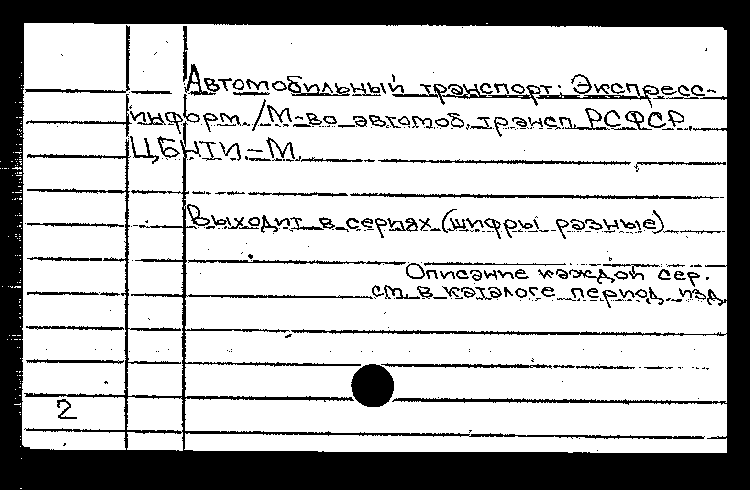 Автомобильный транспорт: Экспресс-
информ. /М-во автомоб. трансп. РСФСР.
ЦБНТИ-М.
Выходит в сериях (шифры разные)
Описание каждой сер.
см. в каталоге период. изд.
2